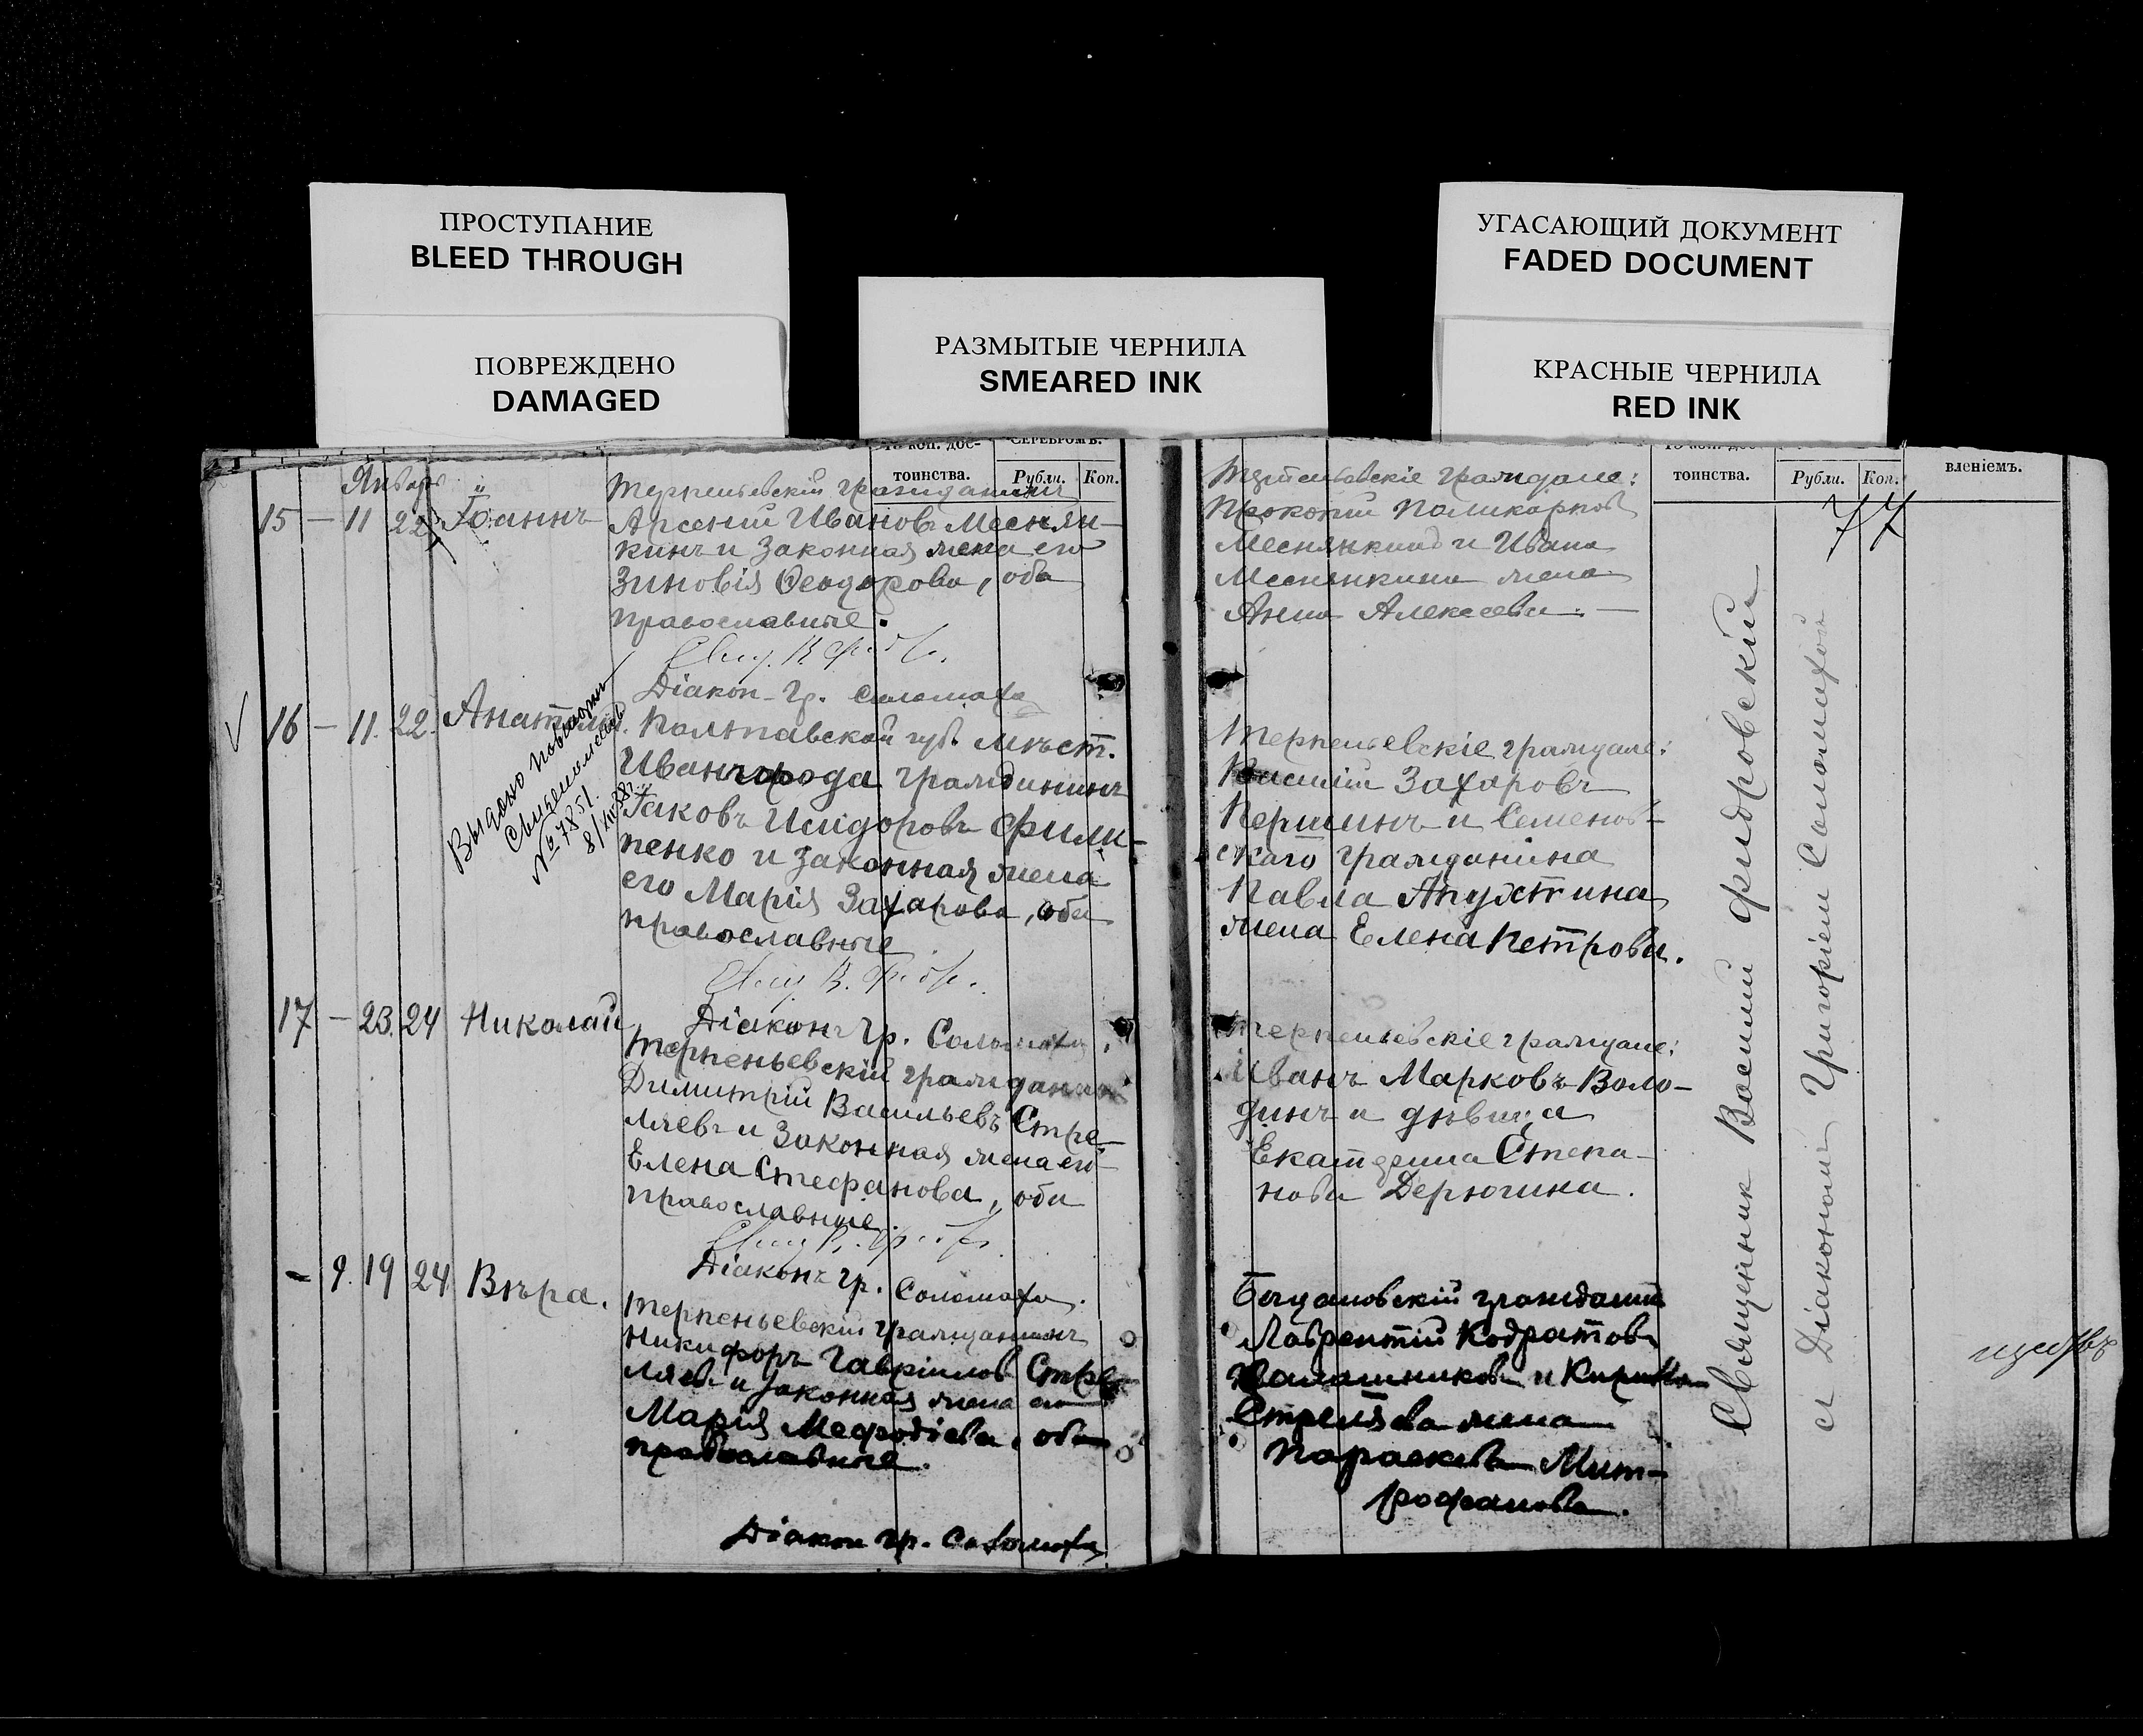 ПРОСТУПАНИЕ
BLEED THROUGH
ПОВРЕЖДЕНО
DAMAGED
РАЗМЫТЫЕ ЧЕРНИЛА
SMEARED INK
УГАСАЮЩИЙ ДОКУМЕНТ
FADED DOCUMENT
КРАСНЫЕ ЧЕРНИЛА
RED INK
тоинства. Рубли. Коп.
Январь
15 — 11 22 Іоаннъ
Терпеньевскій гражданинъ
Арсеній Ивановъ Меснян-
кинъ и законная жена его
Зиновія Феодорова, оба
православные.
Діакон Гр. Соломаха
16 — 11. 22. Анатолій.
Выдано
№ 7851.
8/XII 38 г.
Полтавской губ. мѣст.
Ивангорода гражданинъ
Іаковъ Исидоровъ Фили-
пенко и законная жена
его Марія Захарова, оба
православные
Діаконъ Гр. Соломаха.
17 — 23. 24 Николай
Терпеньевскій гражданинъ
Димитрій Васильевъ Стре-
ляевъ и законная жена его
Елена Стефанова, оба
православные.
Діаконъ Гр. Соломаха.
— 9. 19 24 Вѣра.
Терпеньевскій гражданинъ
Никифоръ Гавріиловъ Стре-
ляевъ и законная жена его
Марія Мефодіева, оба
православные.
Діакон Гр. Соломаха
тоинства. Рубли. Коп. вленіемъ.
77
граждане:
Прокопій Поликарповъ
Меснянкинъ и Ивана
Меснянкина жена
Анна Алексеева. —
Терпеньевскіе граждане:
Василій Захаровъ
Першинъ и Семенов-
скаго гражданина
Павла Апухтина
жена Елена Петрова.
Терпеньевскіе граждане:
Иванъ Марковъ Воло-
динъ и дѣвица
Екатерина Степа-
нова Дерюгина.
Богдановскій гражданинъ
Лаврентій Кодратовъ
и
Стреляева жена
Параскева Мит-
рофанова.
Священник Василий Фидровский
с Діакономъ Григоріем Соломахой